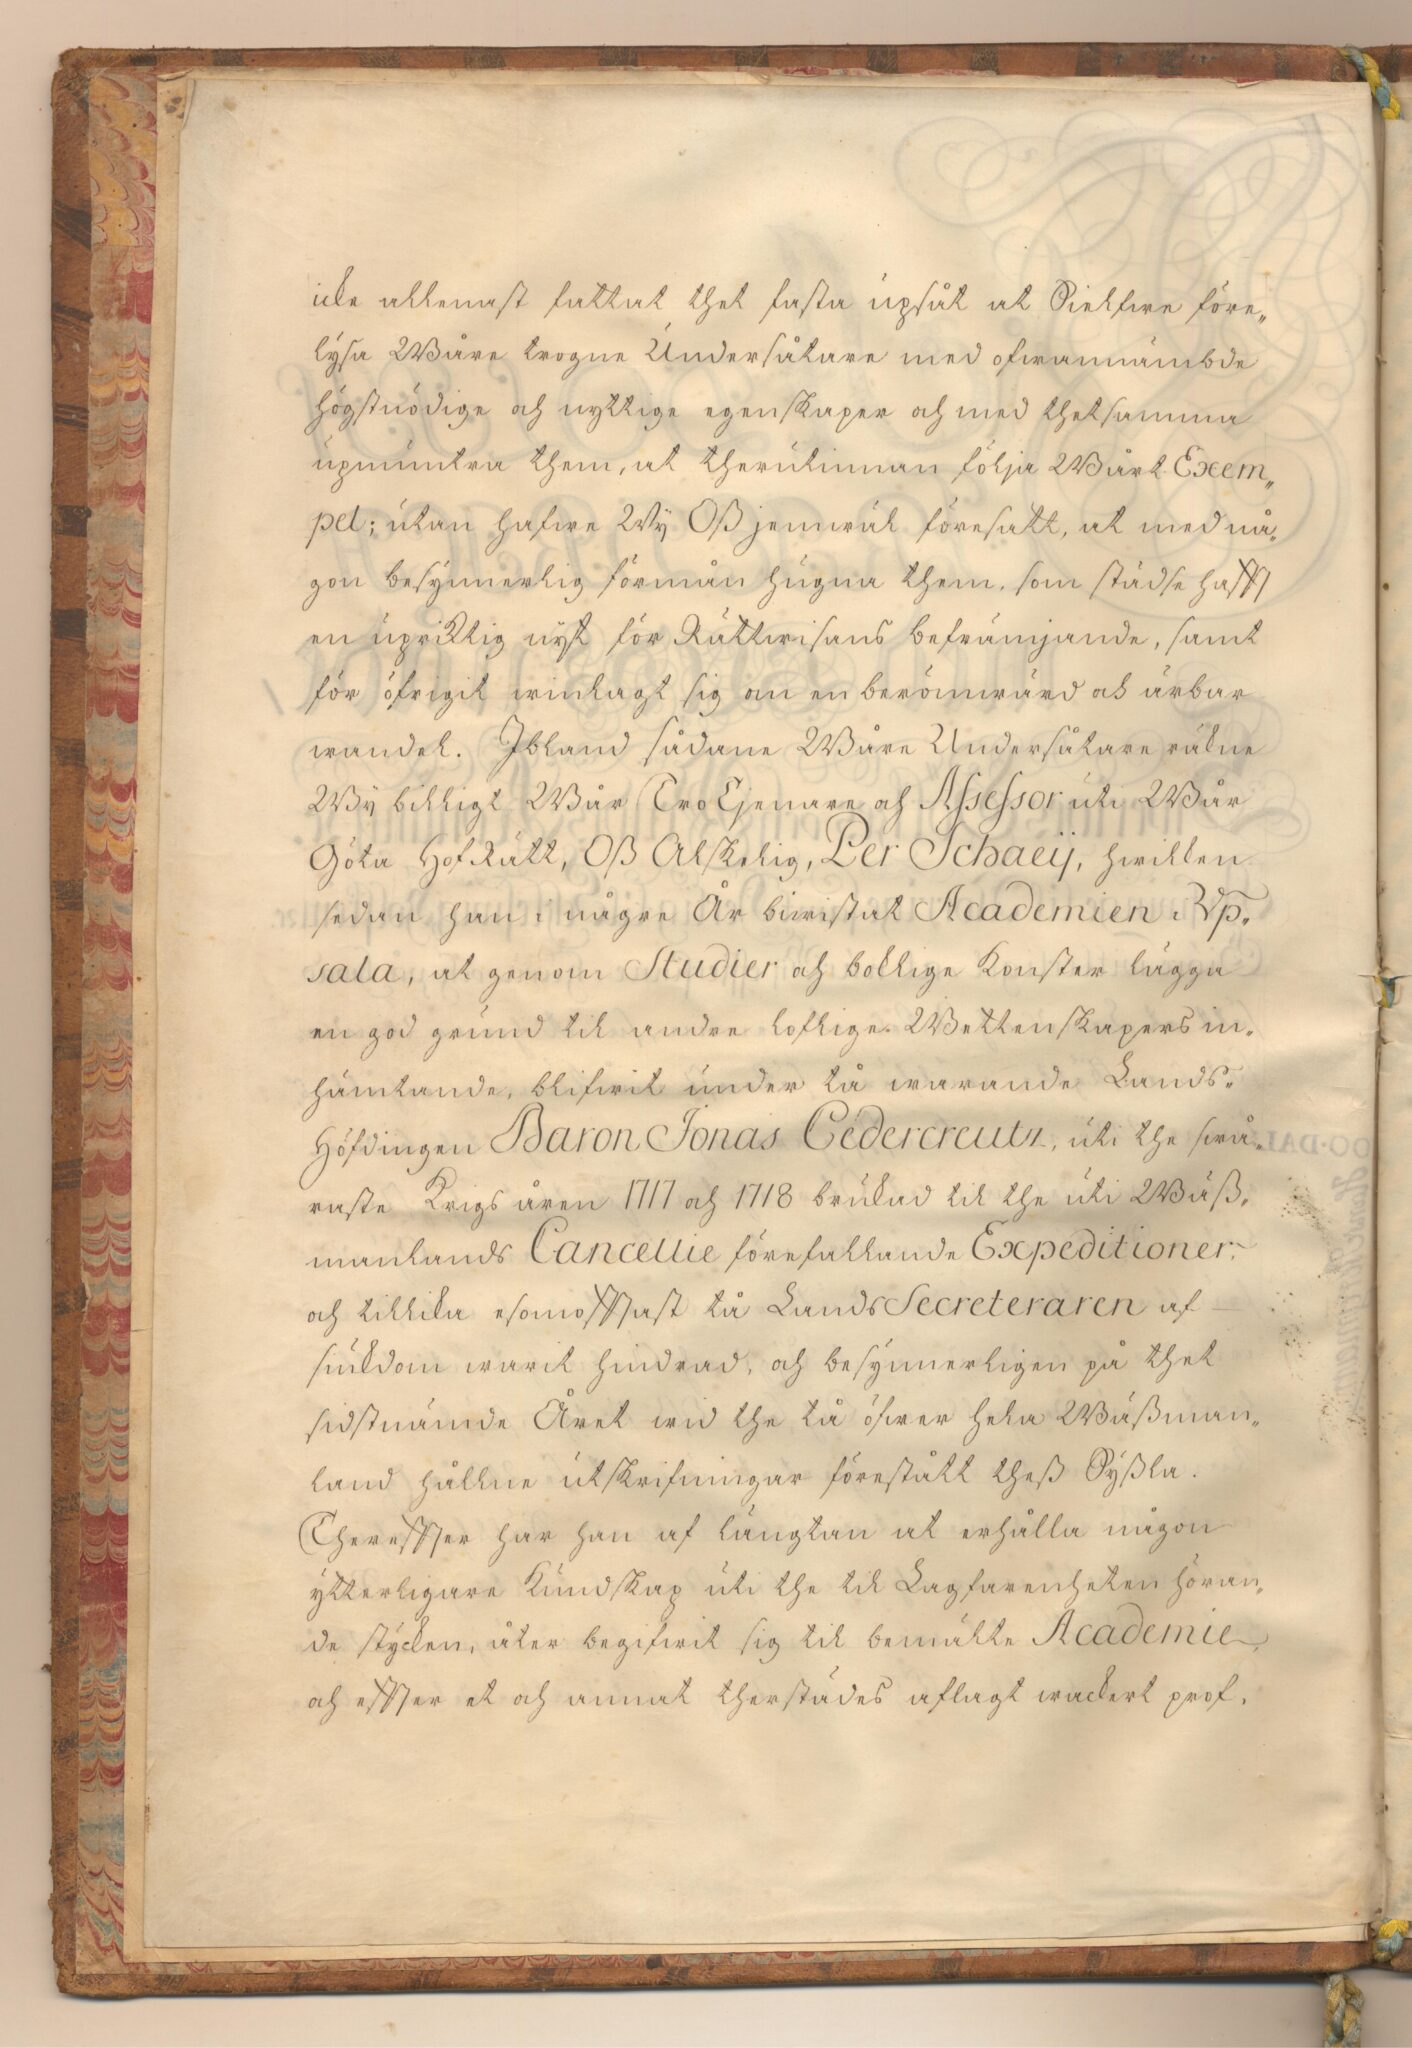 icke allenast fattat thet fasta upsåt at Sielfwe före„
lysa Wåre trogne Undersåtare med ofwannämbde
högstnödige och nyttige egenskaper och med thetsamma
upmuntra them, at therutinnan följa Wårt Exem„
pel; utan hafwe Wy Oß jemwäl föresatt, at med nå„
gon besynnerlig förmån hugna them, som städse hafft
en upricktig nijt för Rättwisans befrämjande, samt
för öfrigit winlagt sig om en berömwärd och ärbar
wandel. Ibland sådane Wåre Undersåtare räkne
Wy billigt Wår Tro Tjenare och Assessor uti Wår
Göta HofRätt, Oß Älskelig, Per Schaeij, hwilken
sedan han i någre År biwistat Academien i Up„
sala, at genom Studier och boklige Konster lägga
en god grund til andre loflige Wettenskapers in„
hämtande, blifwit under tå warande Lands„
Höfdingen Baron Jonas Cedercreutz, uti the swå„
raste Krigs åren 1717 och 1718 brukad til the uti Wäß„
manlands Cancellie förefallande Expeditioner,
och tillika esomofftast tå LandsSecreteraren af
siukdom warit hindrad, och besynnerligen på thet
sidstnämde Året wid the tå öfwer hela Wäßman„
land hållne utskrifningar förestått theß Syßla.
Thereffter har han af längtan at erhålla någon
ytterligare Kundskap uti the til Lagfarenheten höran„
de stycken, åter begifwit sig til bemälte Academie,
och effter et och annat therstädes aflagt wackert prof,